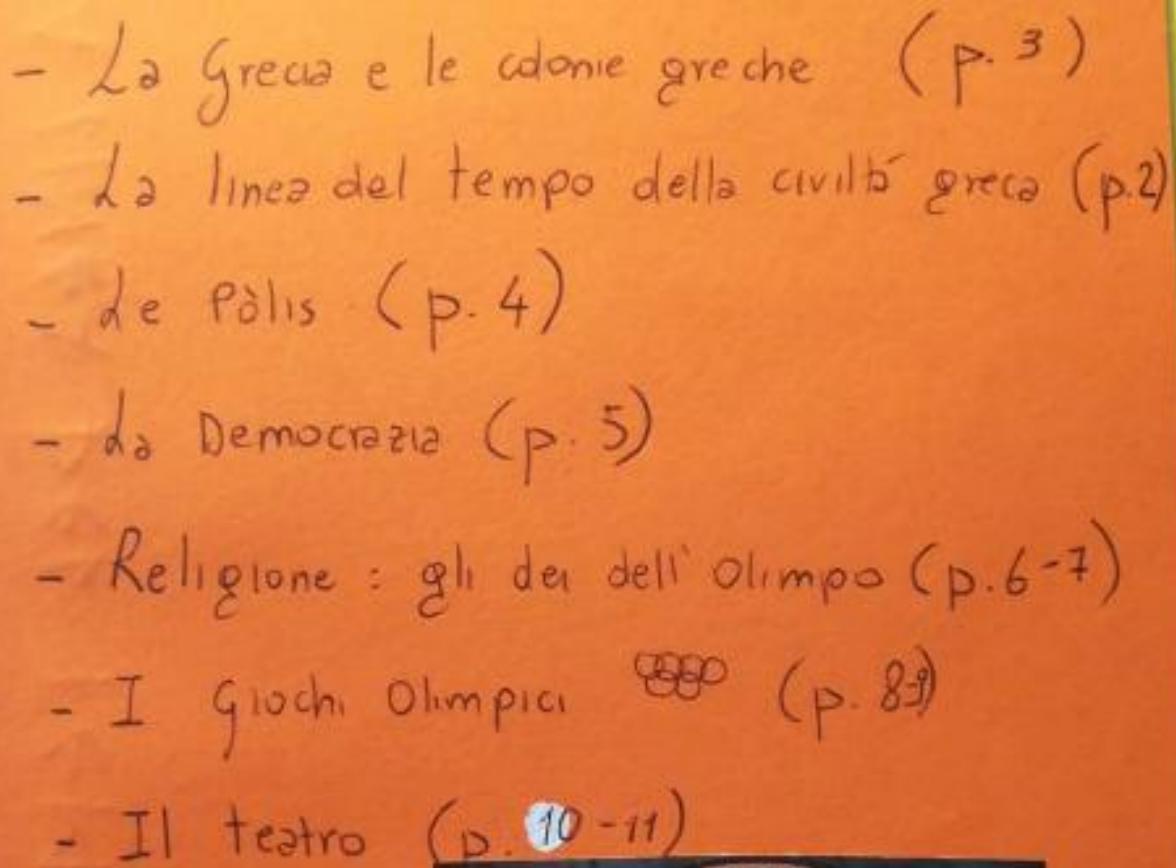 - La Grecia e le colonie greche (p. 3)
- La linea del tempo della civiltà greca (p.2)
- Le Pòlis (p. 4)
- La Democrazia (p. 5)
- Religione : gli dei dell'Olimpo (p.6-7)
- I Giochi Olimpici (p. 8-9)
- Il teatro (p. 10-11)